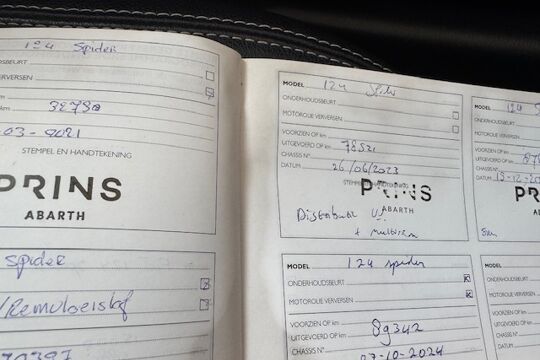 124 Spider
DSBEURT
VERVERSEN
km
32780
-03-2021
STEMPEL EN HANDTEKENING
PRINS
ABARTH
Spider
/Remvloeistof
70397
MODEL 124 Spider
ONDERHOUDSBEURT
MOTOROLIE VERVERSEN
VOORZIEN OP km
UITGEVOERD OP km 78521
CHASSIS N°
DATUM 26/06/2023
STEMPEL HANDTEKENING
PRINS
ABARTH
Distributie
+ multiriem
MODEL 124 spider
ONDERHOUDSBEURT
MOTOROLIE VERVERSEN
VOORZIEN OP km
UITGEVOERD OP km 89342
CHASSIS N°
07-10-2024
MODEL 124 S
ONDERHOUDSBEURT
MOTOROLIE VERVERSEN
VOORZIEN OP km
UITGEVOERD OP km 87
CHASSIS N°
DATUM 13-12-20
PR
A
MODEL
ONDERHOUDSBE
MOTOROLIE VER
VOORZIEN OP k
UITGEVOERD O
CHASSIS N°